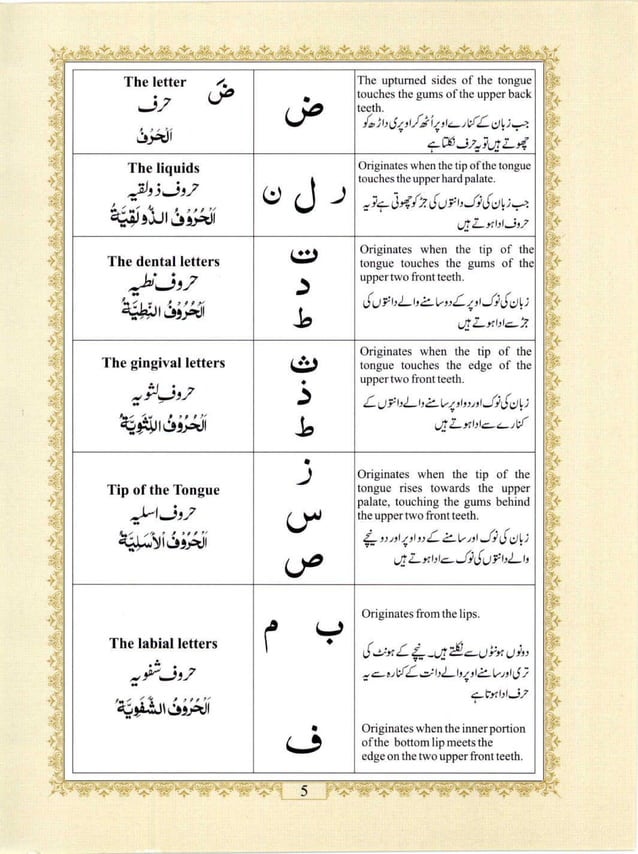 The letter ضَ
حرف
اَلْحَرْفُ
ض
The upturned sides of the tongue
touches the gums of the upper back
teeth.
جب زبان کے کنارے اوپر اُٹھ کر اوپری داڑھ کو
چھوتے ہیں تو یہ حرف نکلتا ہے
The liquids
حروف ذولقیہ
اَلْحُرُوْفُ الذَّوْلَقِيَّةُ
ر ل ن
Originates when the tip of the tongue
touches the upper hard palate.
جب زبان کی نوک دانتوں کی جڑ کو چھوتی ہے تو یہ
حروف ادا ہوتے ہیں
The dental letters
حروف نطیہ
اَلْحُرُوْفُ النِّطِيَّةُ
ت
د
ط
Originates when the tip of the
tongue touches the gums of the
upper two front teeth.
زبان کی نوک اوپر کے دو سامنے والے دانتوں کی
جڑ سے ادا ہوتے ہیں
The gingival letters
حروف لثویہ
اَلْحُرُوْفُ اللِّثَوِيَّةُ
ث
ذ
ط
Originates when the tip of the
tongue touches the edge of the
upper two front teeth.
زبان کی نوک اور دو اوپر سامنے والے دانتوں کے
کنارے سے ادا ہوتے ہیں
Tip of the Tongue
حروف اسلیہ
اَلْحُرُوْفُ الْأَسَلِيَّةُ
ز
س
ص
Originates when the tip of the
tongue rises towards the upper
palate, touching the gums behind
the upper two front teeth.
زبان کی نوک اور سامنے کے دو اوپر اور دو نیچے
والے دانتوں کی نوک سے ادا ہوتے ہیں
The labial letters
حروف شفویہ
اَلْحُرُوْفُ الشَّفَوِيَّةُ
ب م
ف
Originates from the lips.
دونوں ہونٹوں سے نکلتے ہیں۔ نیچے کے ہونٹ کی
تری اور سامنے اوپر والے دانت کے کنارہ سے یہ
حرف ادا ہوتا ہے
Originates when the inner portion
of the bottom lip meets the
edge on the two upper front teeth.
5